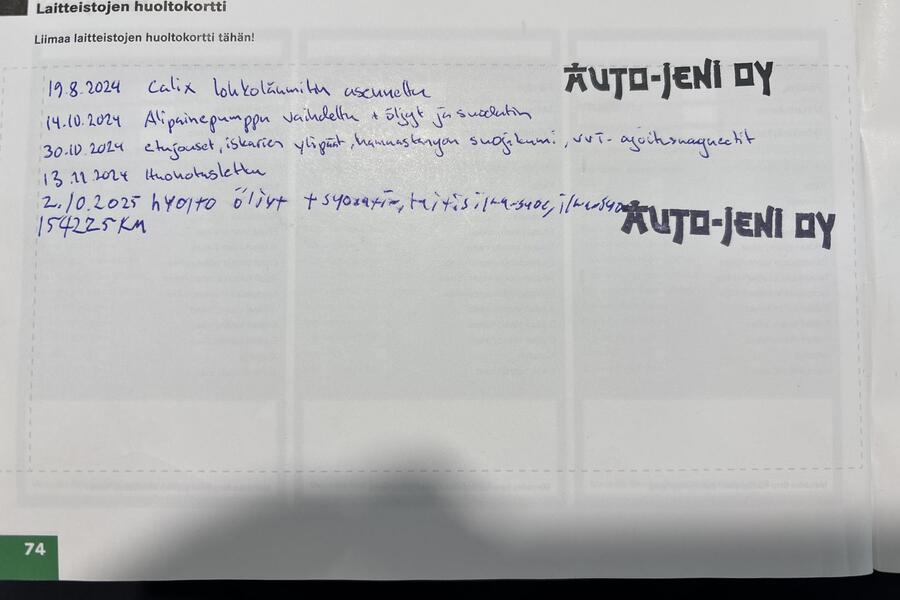 Laitteistojen huoltokortti
Liimaa laitteistojen huoltokortti tähän!
AUTO-JENI OY
19.8.2024 Calix lohkolämmitin asennettu
14.10.2024 Alipainepumppu vaihdettu + öljyt ja suodatin
30.10.2024 etujouset, iskarien yläpäät, hammastangon suojakumi, vvt-ajoitusmagneetit
13.11.2024 Huohotusletku
2.10.2025 hyolto öliyt + syodatin, raitisilma-suod, ilma-suod
AUTO-JENI OY
154225 KM
74